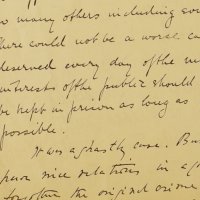 so many others including
There could not be a worse ca
deserved every day of the
interests of the public should
be kept in prison as long as
possible.
It was a ghastly case. Bu
nice relations in
the original crime